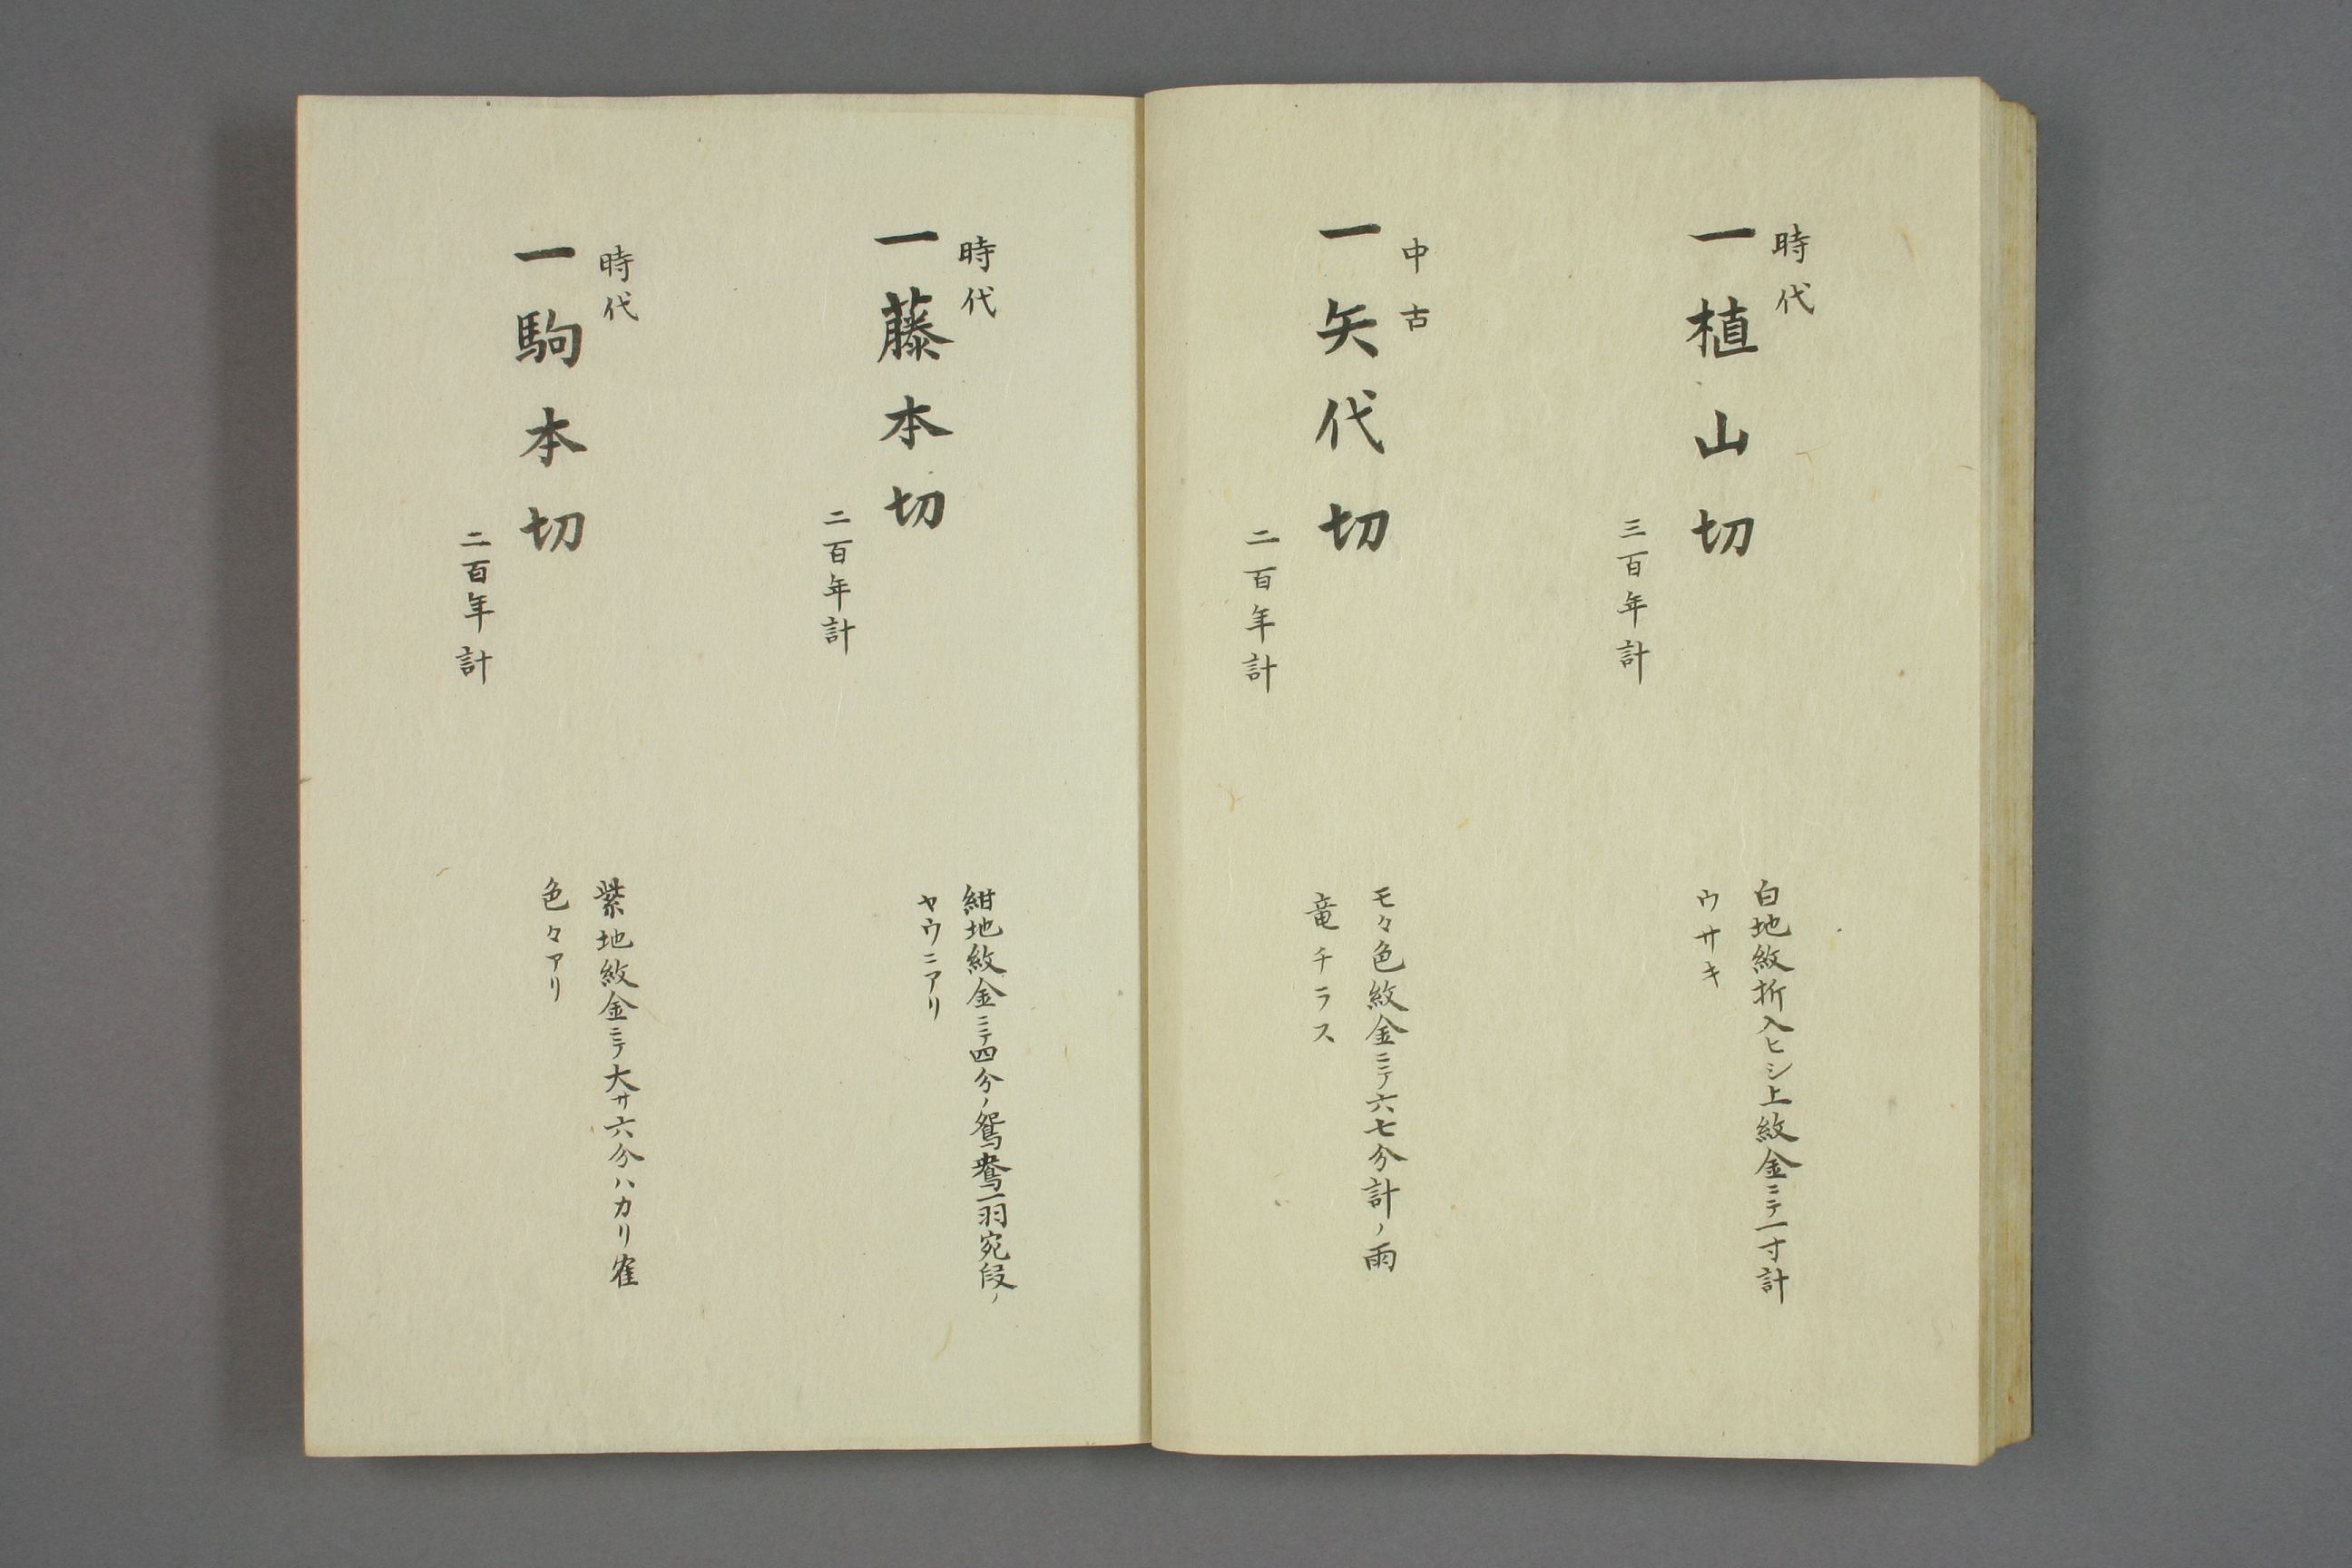 時代
一植山切
三百年計
白地紋折入ヒシ上紋金ニテ一寸計
ウサキ
中古
一矢代切
二百年計
モ々色紋金ニテ六七分計ノ雨
竜チラス
時代
一藤本切
二百年計
紺地紋金ニテ四分ノ鴛鴦一羽宛段ノ
ヤウニアリ
時代
一駒本切
二百年計
紫地紋金ニテ大サ六分ハカリ隺
色々アリ